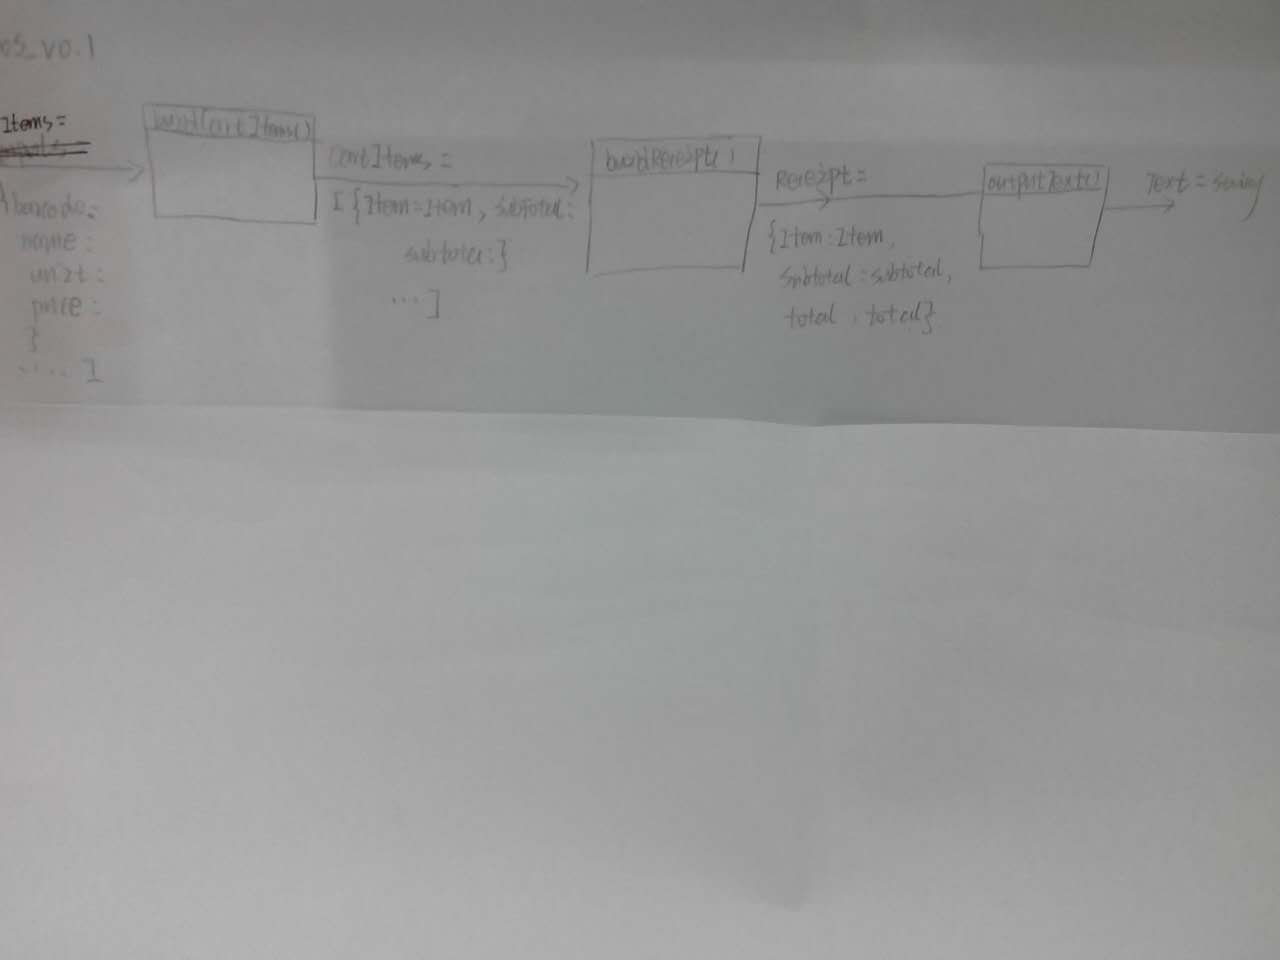 os_v0.1
Items=
inputs=
{barcode:
name:
unit:
price:
}
......]
buildCartItems()
CartItems=
[{Item:Item, subtotal:
subtotal:}
...]
buildReceipt()
Receipt=
{Item:Item,
subtotal:subtotal,
total:total}
outputText()
Text=string